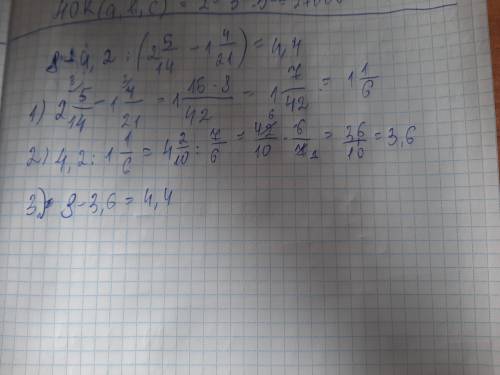 НОК(a,b,c) =
8-4,2 : (2 5/14 - 1 4/21) = 4,4
1) 2 5/14 - 1 4/21 = 1 (15-8)/42 = 1 7/42 = 1 1/6
2) 4,2 : 1 1/6 = 4 2/10 : 7/6 = 42/10 · 6/7 = 36/10 = 3,6
3) 8-3,6 = 4,4